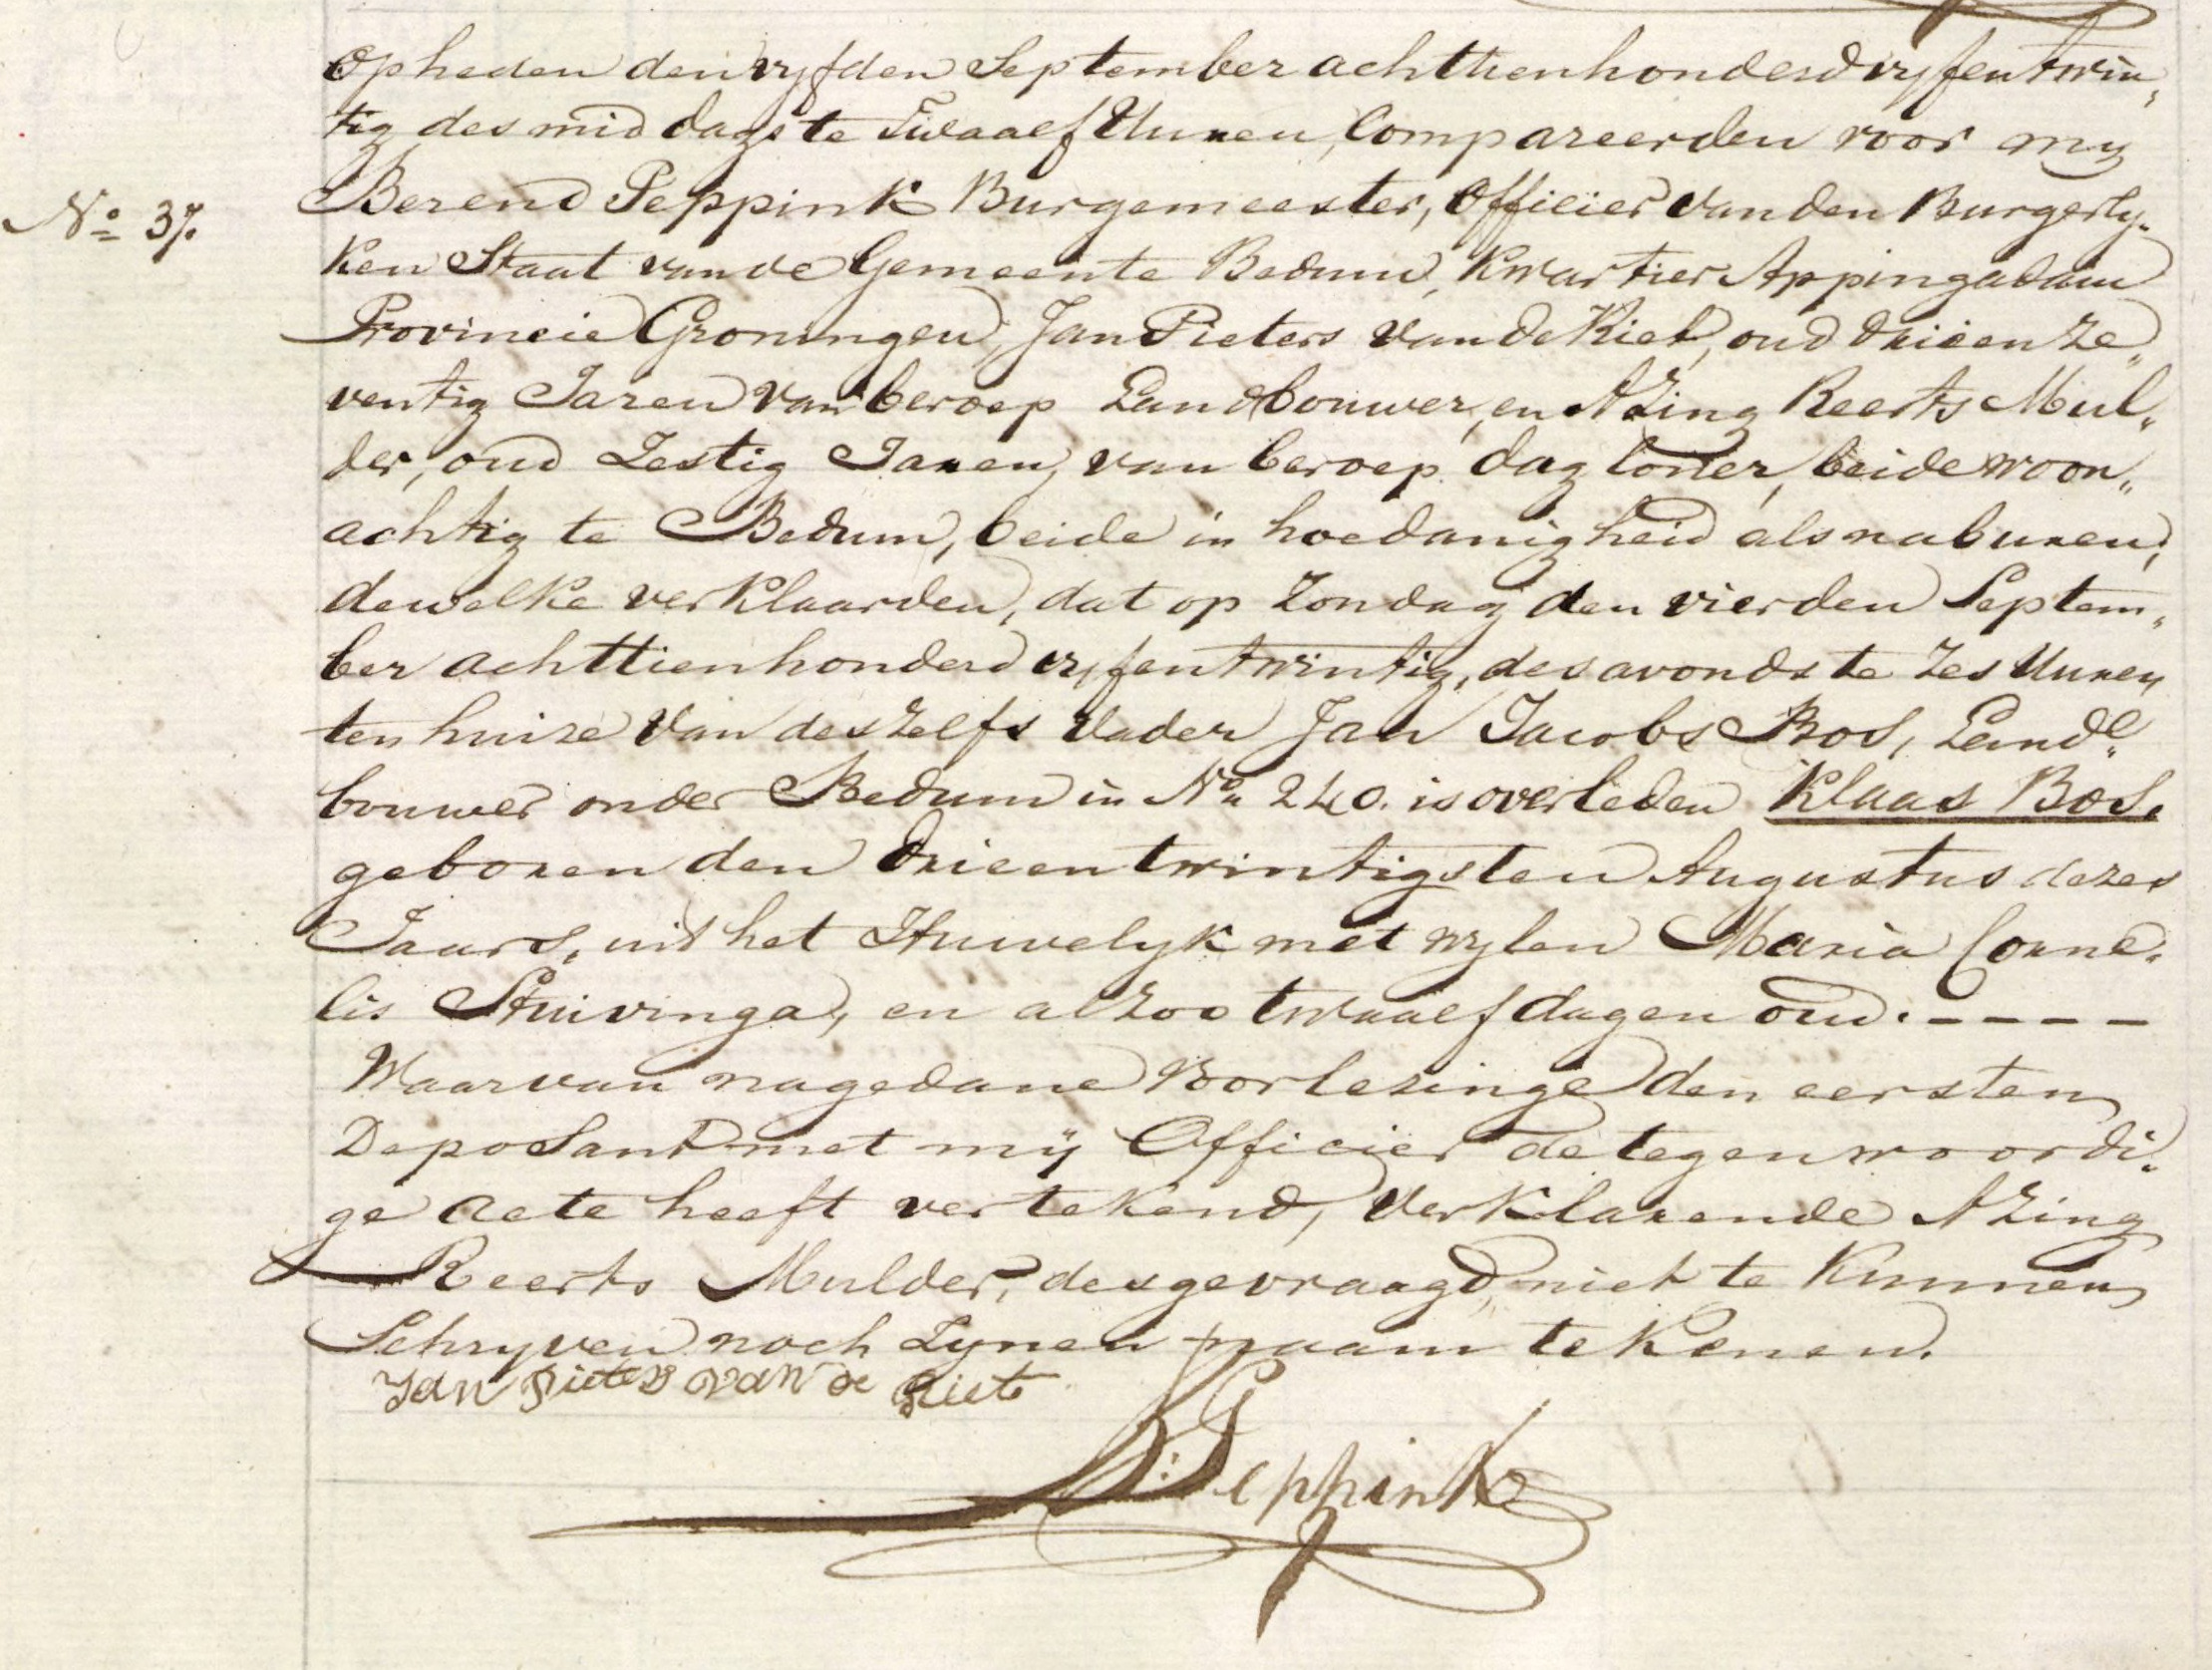 Op heden den vyfden September achttienhonderd vyfentwin„
tig des middags te Twaalf Uuren, Compareerden voor my
Berend Peppink Burgemeester, Officier van den Burgerly„
No 37.
ken Staat van de Gemeente Bedum, Kwartier Appingadam
Provincie Groningen, Jan Pieters van de Riet, oud drieenze„
ventig Jaren van beroep Landbouwer, en Azing Reerts Mul„
der, oud Zestig Jaren, van beroep dagloner, beide woon„
achtig te Bedum, beide in hoedanigheid als naburen,
dewelke verklaarden, dat op Zondag den vierden Septem„
ber achttienhonderd vyfentwintig, des avonds te zes Uuren
ten huize van deszelfs Vader Jan Jacobs Bos, Land„
bouwer onder Bedum in No 240. is overleden Klaas Bos.
geboren den drieentwintigsten Augustus dezes
Jaars, uit het Huwelyk met wylen Maria Corne„
lis Stuivinga, en alzoo twaalf dagen oud. - - - -
Waarvan na gedane Voorlezinge den eersten
Deposant met mij Officier de tegenwoordi„
ge acte heeft vertekend, Verklarende Azing
Reerts Mulder, desgevraagd, niet te kunnen
Schryven noch Zynen naam tekenen.
Jan Pieters van de Riet
B: Peppink